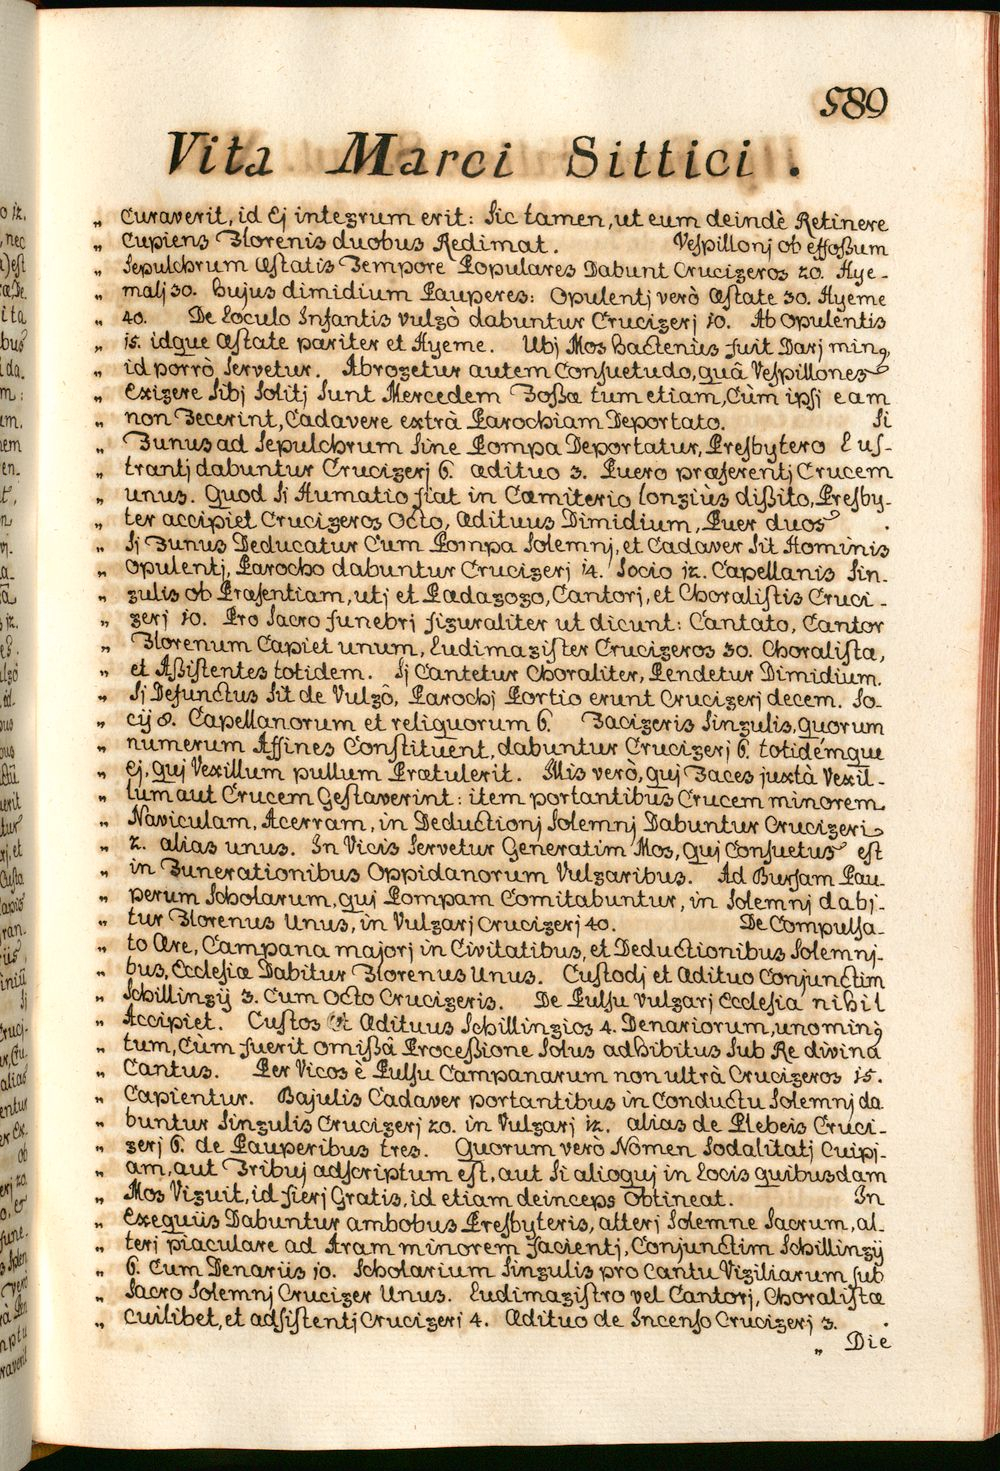 589
Vita Marci Sittici .
„ Curaverit, id Ej integrum erit: Sic tamen, ut eum deindè Retinere
„ Cupiens Florenis duobus Redimat. Vespillonj ob effoßum
„ Sepulchrum Æstatis Tempore Populares Dabunt Crucigeros 20. Hye-
„ malj 30. hujus dimidium Pauperes: Opulentj verò Æstate 30. Hyeme
„ 40. De Loculo Infantis vulgò dabuntur Crucigerj 10. Ab Opulentis
„ 15. idque Æstate pariter et Hyeme. Ubj Mos hactenùs fuit Darj min9
„ id porrò Servetur. Abrogetur autem Consuetudo, quâ Vespillones
„ Exigere Sibj Solitj Sunt Mercedem Foßæ tum etiam, Cùm ipsi eam
„ non Fecerint, Cadavere extrà Parochiam Deportato. Si
„ Funus ad Sepulchrum Sine Pompa Deportatur, Presbytero Lus-
„ trantj dabuntur Crucigerj 6. Ædituo 3. Puero præferentj Crucem
„ unus. Quod Si Humatio fiat in Cæmiterio longiùs dißito, Presby-
„ ter accipiet Crucigeros Octo, Ædituus Dimidium, Puer duos .
„ Sj Funus Deducatur Cum Pompa Solemnj, et Cadaver Sit Hominis
„ Opulentj, Parocho dabuntur Crucigerj 14. Socio 12. Capellanis Sin-
„ gulis ob Præsentiam, utj et Pædagogo, Cantorj, et Choralistis Cruci-
„ gerj 10. Pro Sacro funebrj figuraliter ut dicunt: Cantato, Cantor
„ Florenum Capiet unum, Ludimagister Crucigeros 30. Choralista,
„ et Aßistentes totidem. Sj Cantetur Choraliter, Pendetur Dimidium.
„ Sj Defunctus Sit de Vulgô, Parochj Portio erunt Crucigerj decem. So-
„ cij 8. Capellanorum et reliquorum 6. Facigeris Singulis, quorum
„ numerum Affines Constituent, dabuntur Crucigerj 6. totidémque
„ Ej, quj Vexillum pullum Prætulerit. Illis verò, quj Faces juxtà Vexil-
„ lum aut Crucem Gestaverint: item portantibus Crucem minorem
„ Naviculam, Acerram, in Deductionj Solemnj Dabuntur Crucigeri
„ 2. alias unus. In Vicis Servetur Generatim Mos, quj Consuetus est
„ in Funerationibus Oppidanorum Vulgaribus. Ad Bursam Pau-
„ perum Scholarum, quj Pompam Comitabuntur, in Solemnj dabj-
„ tur Florenus Unus, in Vulgarj Crucigerj 40. De Compulsa-
„ to Ære, Campana majorj in Civitatibus, et Deductionibus Solemnj-
„ bus, Ecclesiæ Dabitur Florenus Unus. Custodj et Ædituo Conjunctim
„ Schillingij 3. Cum Octo Crucigeris. De Pulsu Vulgarj Ecclesia nihil
„ Accipiet. Custos et Ædituus Schillingios 4. Denariorum, uno min9
„ tum, Cùm fuerit omißâ Proceßione Solus adhibitus Sub Re divinâ
„ Cantus. Per Vicos è Pulsu Campanarum non ultrà Crucigeros 15.
„ Capientur. Bajulis Cadaver portantibus in Conductu Solemnj da
„ buntur Singulis Crucigerj 20. in Vulgarj 12. alias de Plebeis Cruci-
„ gerj 6. de Pauperibus tres. Quorum verò Nomen Sodalitatj Cuipj-
„ am, aut Tribuj adscriptum est, aut Si alioquj in Locis quibusdam
„ Mos Viguit, id fierj Gratis, id etiam deinceps Obtineat. In
„ Exequiis Dabuntur ambobus Presbyteris, alterj Solemne Sacrum, al-
„ terj piaculare ad Aram minorem Facientj, Conjunctim Schillingij
„ 6. Cum Denariis 10. Scholarium Singulis pro Cantu Vigiliarum sub
„ Sacro Solemnj Cruciger Unus. Ludimagistro vel Cantorj, Choralistæ
„ Cuilibet, et adsistentj Crucigeri 4. Ædituo de Incenso Crucigerj 3. .
„ Die